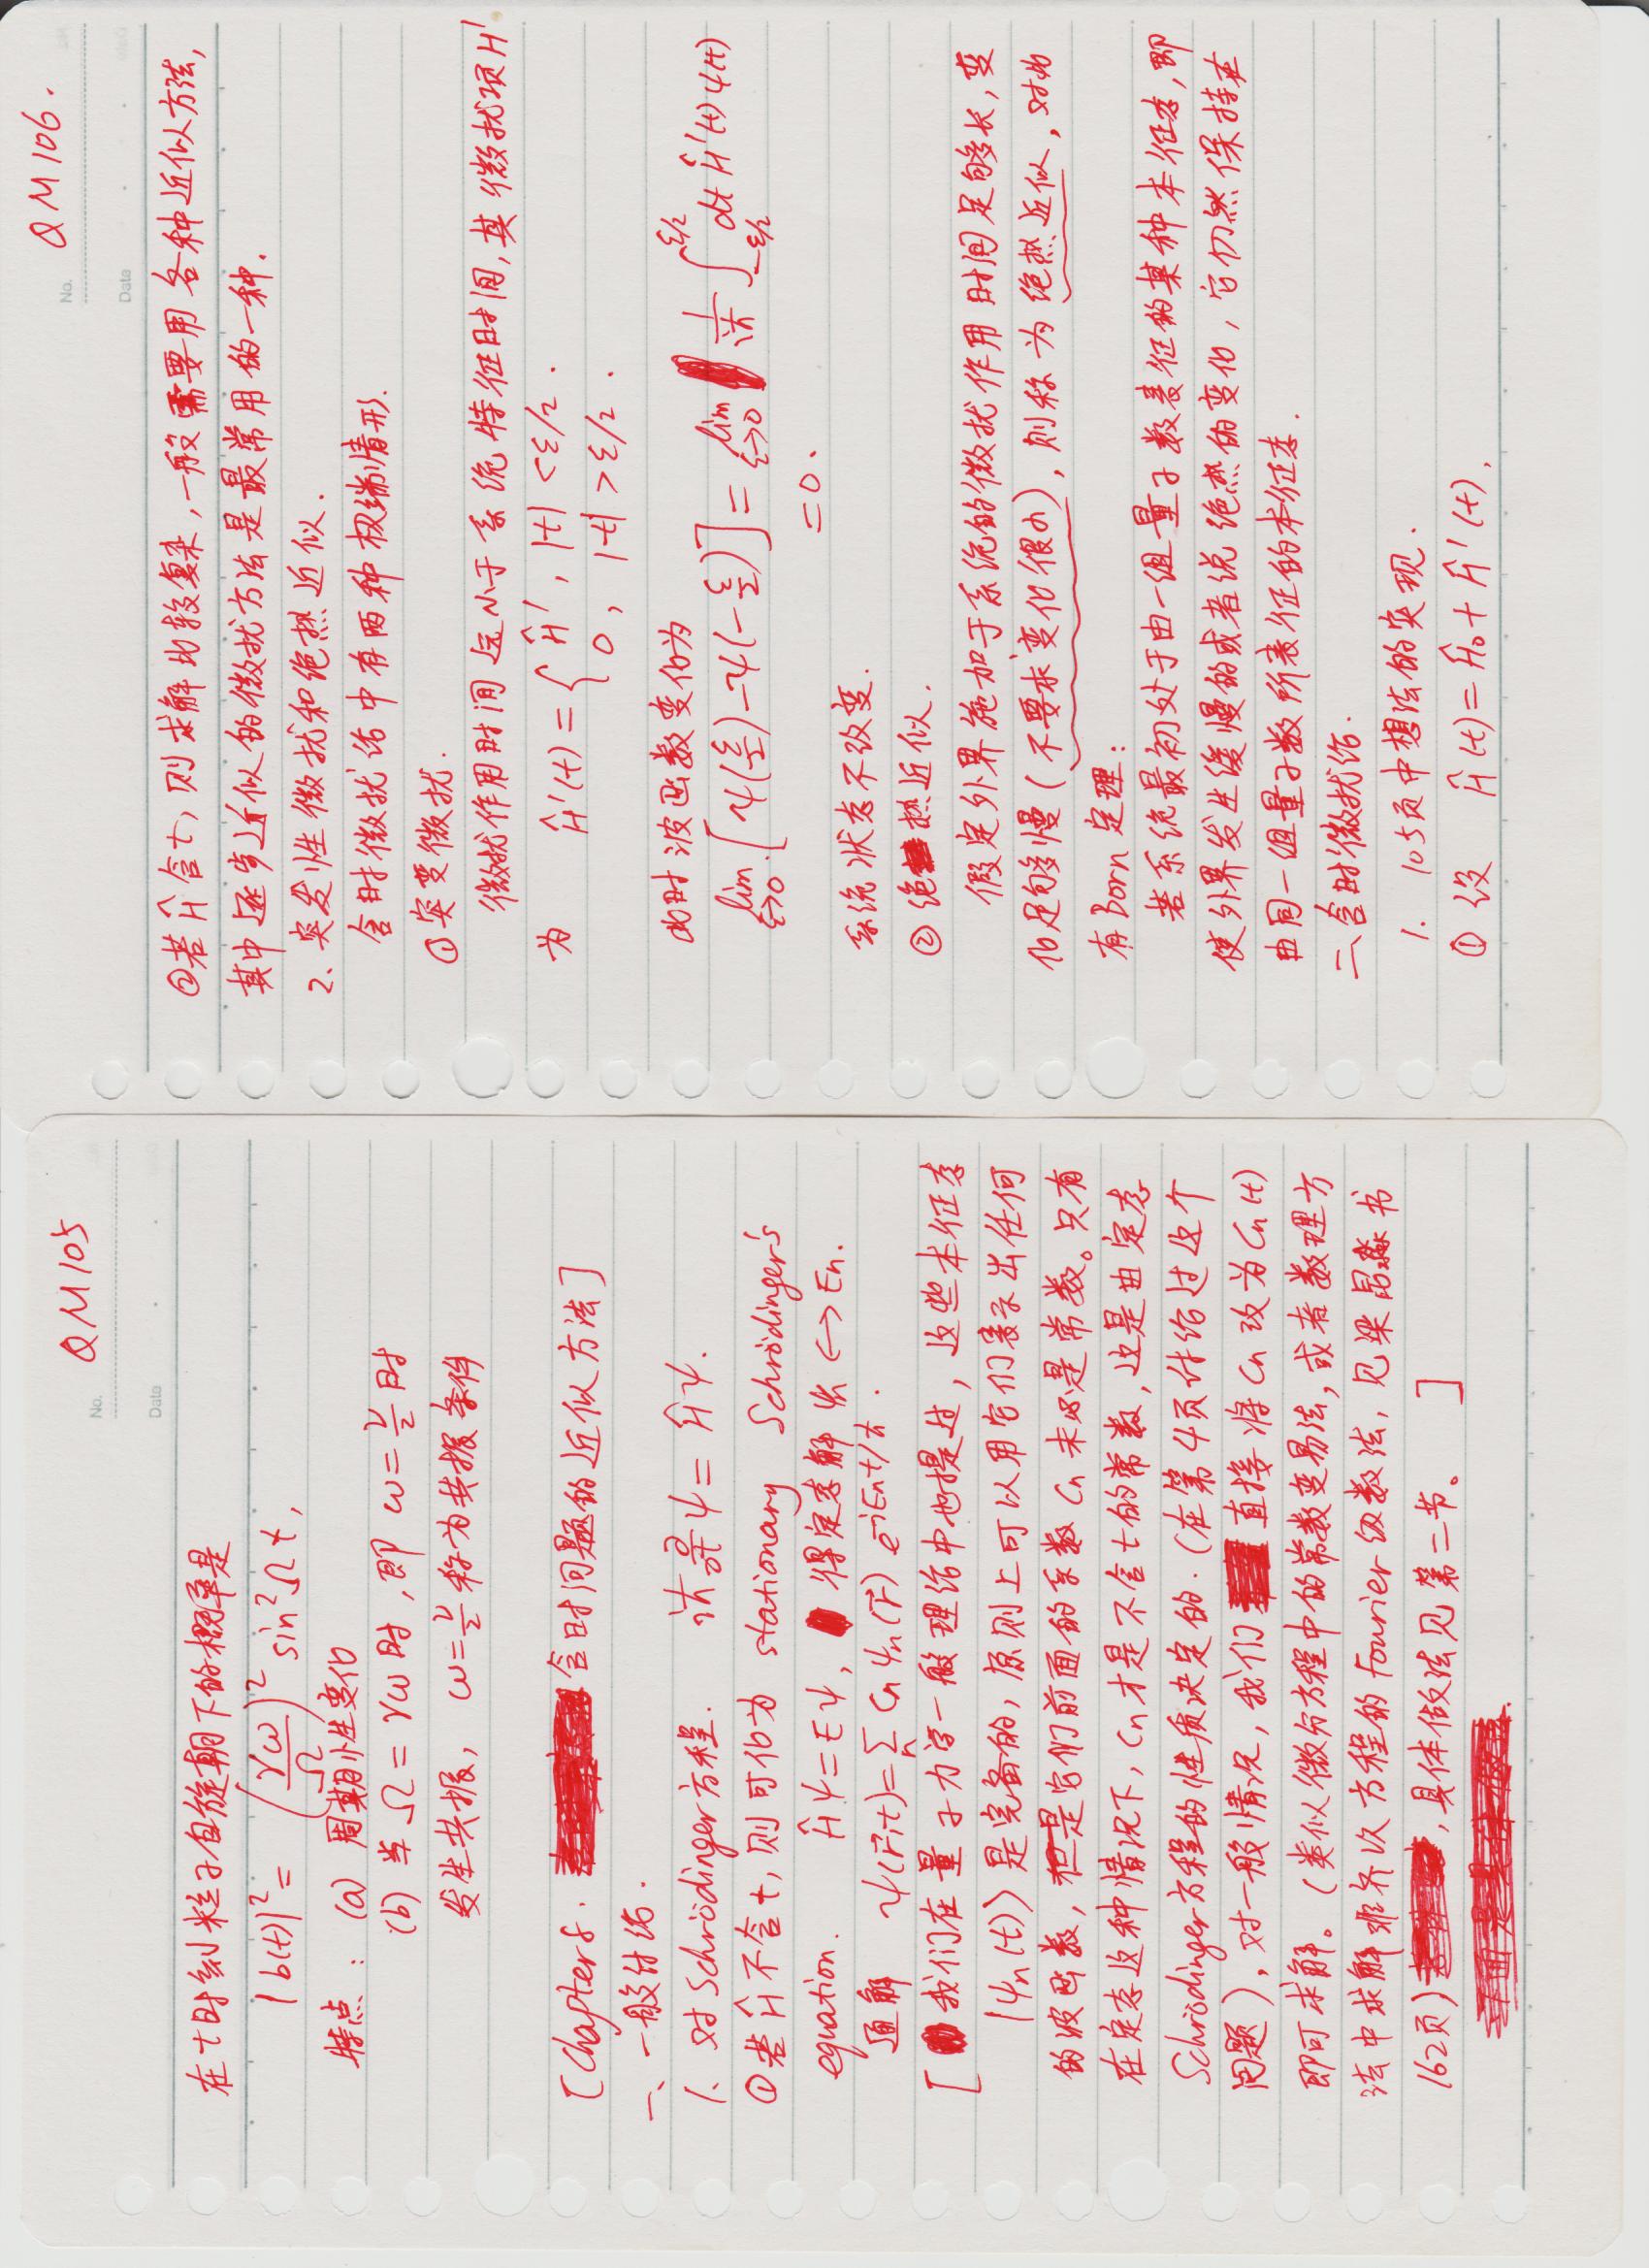 QM105
No.
Date
在t时刻粒子自旋朝下的概率是
|b(t)|² = (γω/Ω)² sin²Ωt,
特点: (a) 周期性变化
(b) 当 Ω = γω 时, 即 ω = ν/2 时
发生共振, ω = ν/2 称为共振条件
[Chapter 8. 含时问题的近似方法]
一、一般讨论.
1、对 Schrödinger 方程. iħ ∂/∂t ψ = Ĥψ.
①若 Ĥ 不含 t, 则可化为 stationary Schrödinger's
equation. Ĥψ = Eψ, 得定态解 ψn ↔ En.
通解 ψ(r⃗,t) = Σn Cn ψn(r⃗) e^(-iEnt/ħ).
[我们在量子力学一般理论中也提过, 这些本征态
|ψn(t)〉是完备的, 原则上可以用它们表示出任何
的波函数, 但是它们前面的系数 Cn 未必是常数。只有
在定态这种情况下, Cn才是不含t的常数, 这是由定态
Schrödinger方程的性质决定的. (在第4页讨论过这个
问题), 对一般情况, 我们直接将 Cn 改为 Cn(t)
即可求解。(类似微分方程中的常数变易法, 或者数理方
法中求解非齐次方程的 Fourier 级数法, 见梁昆淼书
162页), 具体做法见第二节。]
QM106.
No.
Date
②若 Ĥ 含 t, 则求解比较复杂, 一般需要用各种近似方法,
其中逐步近似的微扰方法是最常用的一种.
2、突发性微扰和绝热近似.
含时微扰论中有两种极端情形.
①突变微扰.
微扰作用时间远小于系统特征时间, 其微扰项 H'
为 Ĥ'(t) = { Ĥ', |t| < ε/2.
0, |t| > ε/2.
此时波函数变化为
lim ε→0. [ψ(ε/2) - ψ(-ε/2)] = lim ε→0 1/iħ ∫_{-ε/2}^{ε/2} dt Ĥ'(t) ψ(t)
= 0.
系统状态不改变.
② 绝热近似.
假定外界施加于系统的微扰作用时间足够长, 变
化足够慢 (不要求变化很小), 则称为绝热近似, 对此
有 Born 定理:
若系统最初处于由一组量子数表征的某种本征态, 即
使外界发生缓慢的或者说绝热的变化, 它仍然保持在
由同一组量子数所表征的本征态.
二、含时微扰论.
1. 105页中想法的实现.
① 设 Ĥ(t) = Ĥ0 + Ĥ'(t),